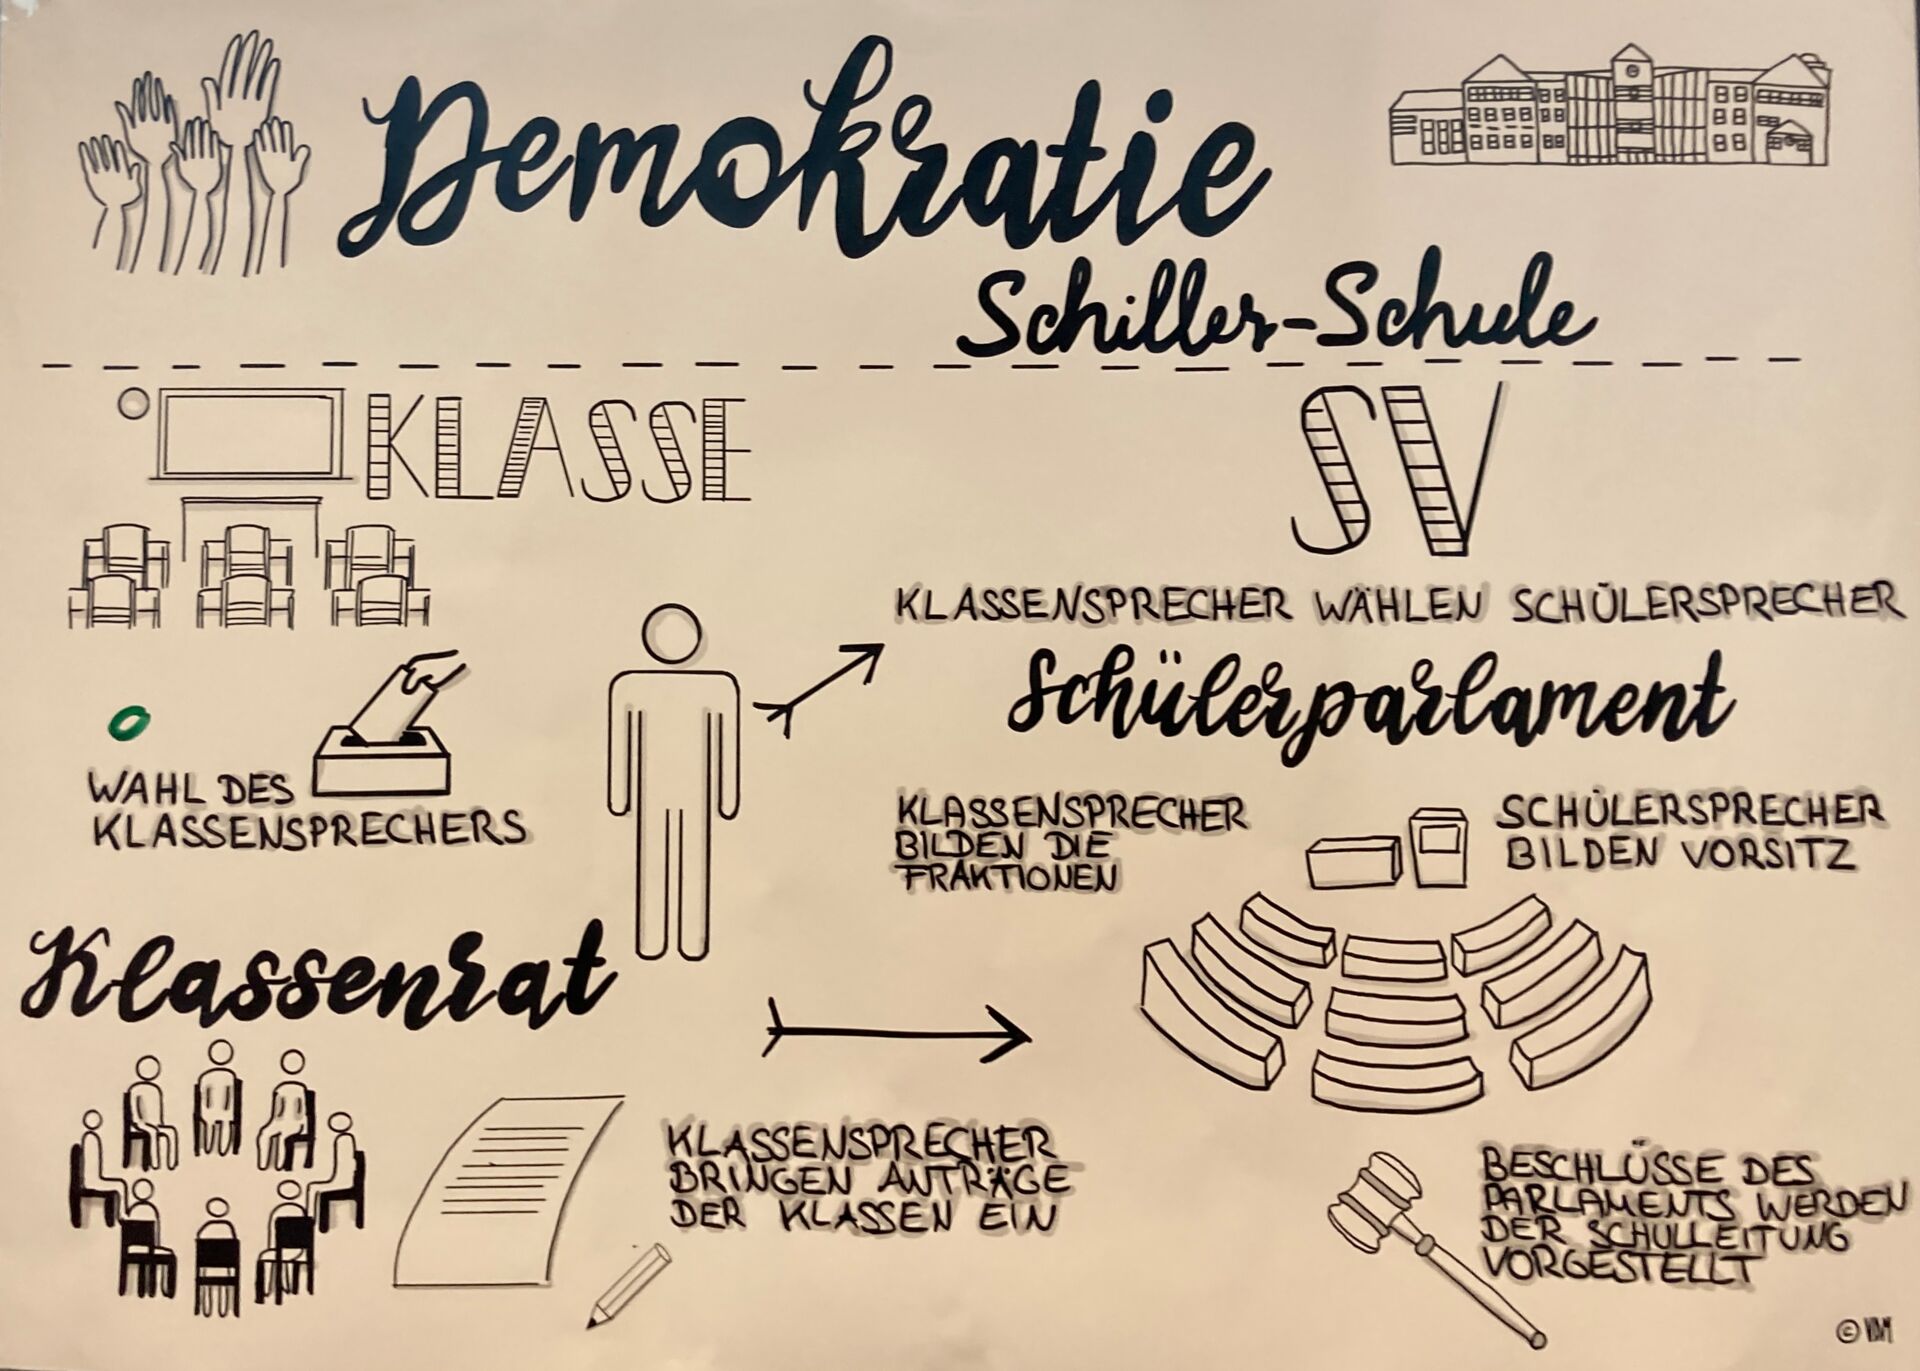 Demokratie
Schiller-Schule
KLASSE
WAHL DES
KLASSENSPRECHERS
Klassenrat
KLASSENSPRECHER
BRINGEN ANTRÄGE
DER KLASSEN EIN
SV
KLASSENSPRECHER WÄHLEN SCHÜLERSPRECHER
Schülerparlament
KLASSENSPRECHER
BILDEN DIE
FRAKTIONEN
SCHÜLERSPRECHER
BILDEN VORSITZ
BESCHLÜSSE DES
PARLAMENTS WERDEN
DER SCHULLEITUNG
VORGESTELLT
©